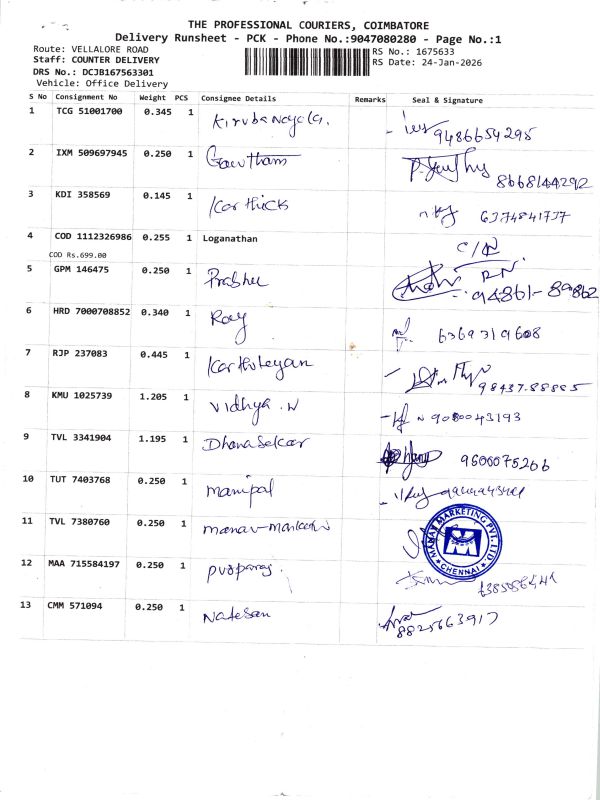 THE PROFESSIONAL COURIERS, COIMBATORE
Delivery Runsheet - PCK - Phone No.:9047080280 - Page No.:1
Route: VELLALORE ROAD
RS No.: 1675633
Staff: COUNTER DELIVERY
RS Date: 24-Jan-2026
DRS No.: DCJB167563301
Vehicle: Office Delivery
S No Consignment No Weight PCS Consignee Details Remarks Seal & Signature
1 TCG 51001700 0.345 1
9486654295
2 IXM 509697945 0.250 1 Gowtham
8668144292
3 KDI 358569 0.145 1 Karthick
6374841737
4 COD 1112326986 0.255 1 Loganathan
COD Rs.699.00
5 GPM 146475 0.250 1 Prabhu
94861-89862
6 HRD 7000708852 0.340 1 Roy
6369319608
7 RJP 237083 0.445 1 Karthikeyan
98437-88885
8 KMU 1025739 1.205 1 Vidhya .N
9080043193
9 TVL 3341904 1.195 1 Dhanasekar
9600075266
10 TUT 7403768 0.250 1 manipal
11 TVL 7380760 0.250 1 manav-marketing
MANAV MARKETING PVT. LTD.
CHENNAI
12 MAA 715584197 0.250 1
13 CMM 571094 0.250 1 Natesan
8825663917